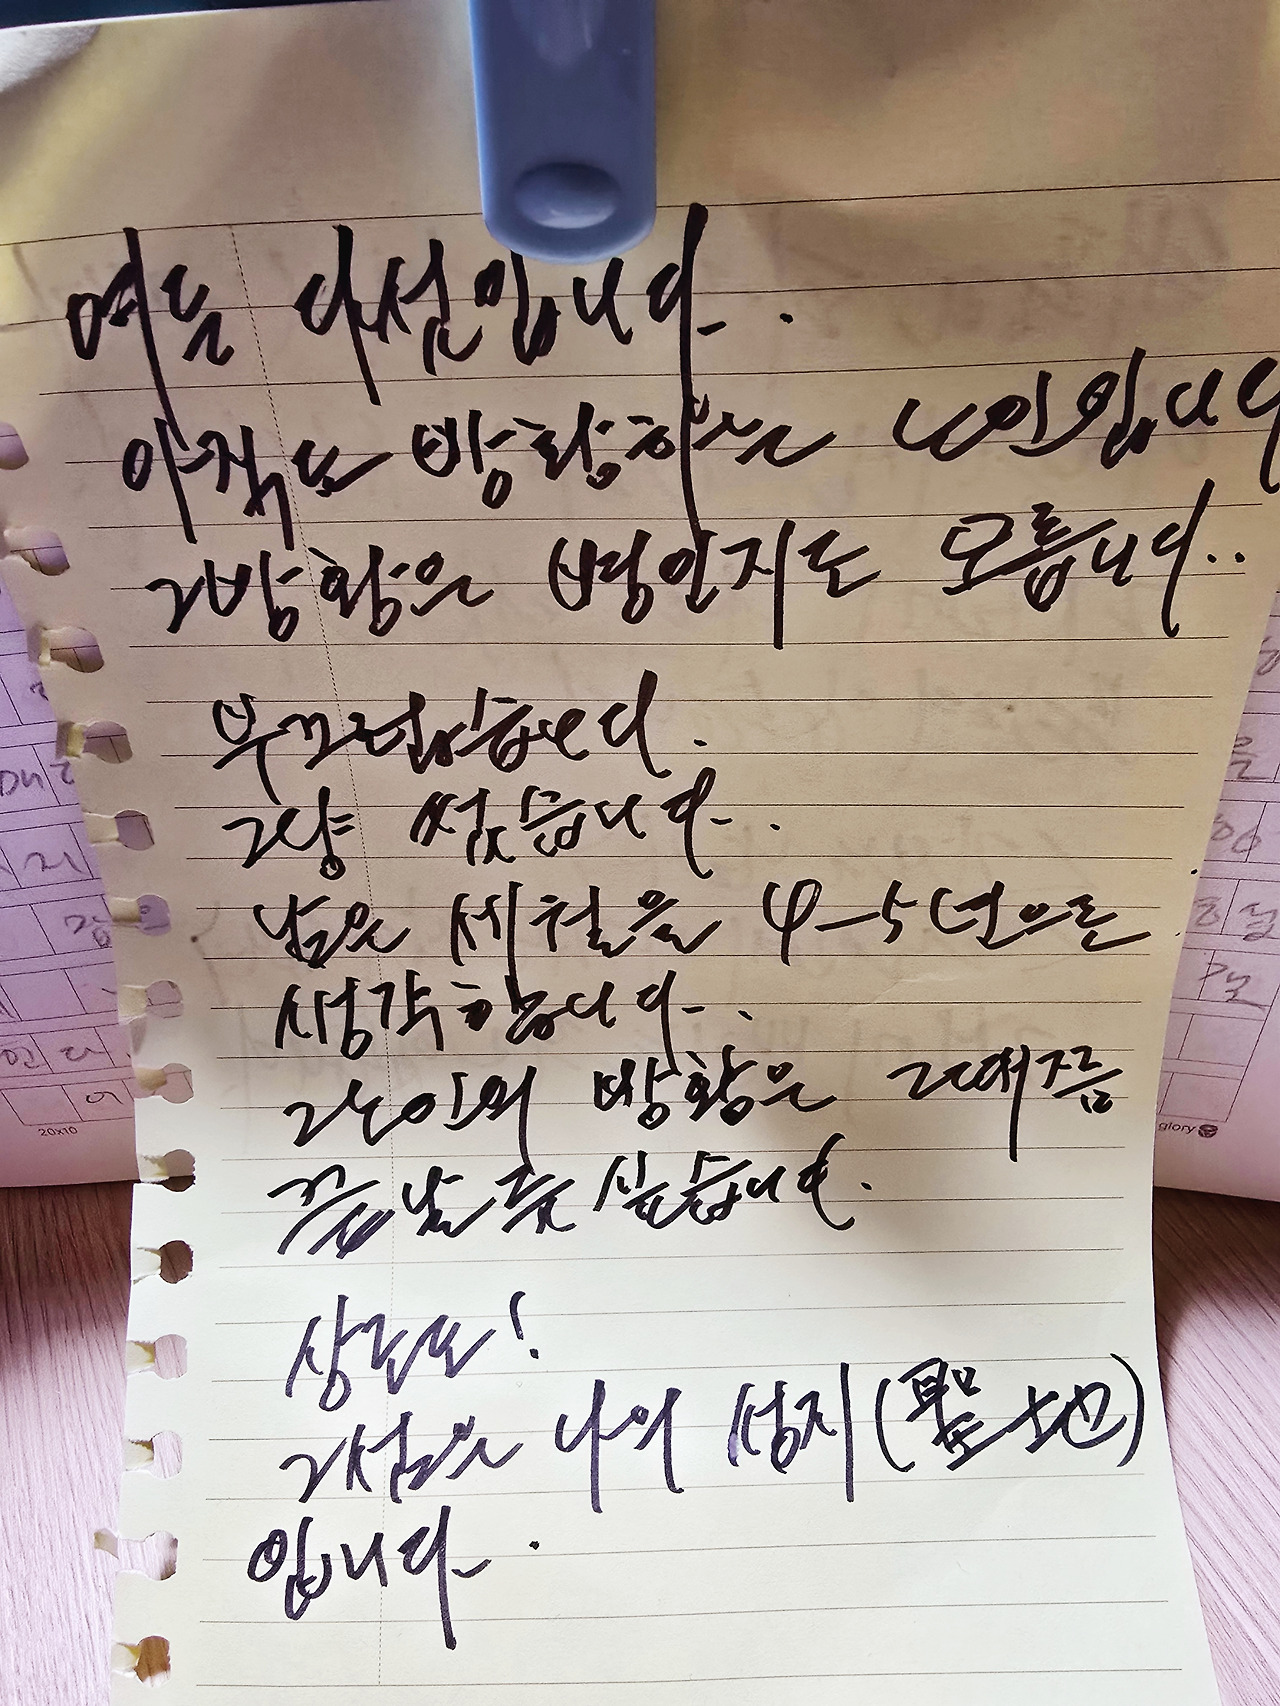 여든 다섯입니다.
아직도 방황하는 노인입니다
그 방황은 병인지도 모릅니다..
부끄럽습니다.
그냥 썼습니다.
남은 세월을 4-5년으로
생각합니다.
그 노인의 방황은 그때쯤
끝날 듯 싶습니다.
상도도!
그 섬은 나의 성지(聖地)
입니다.
20x10
glory